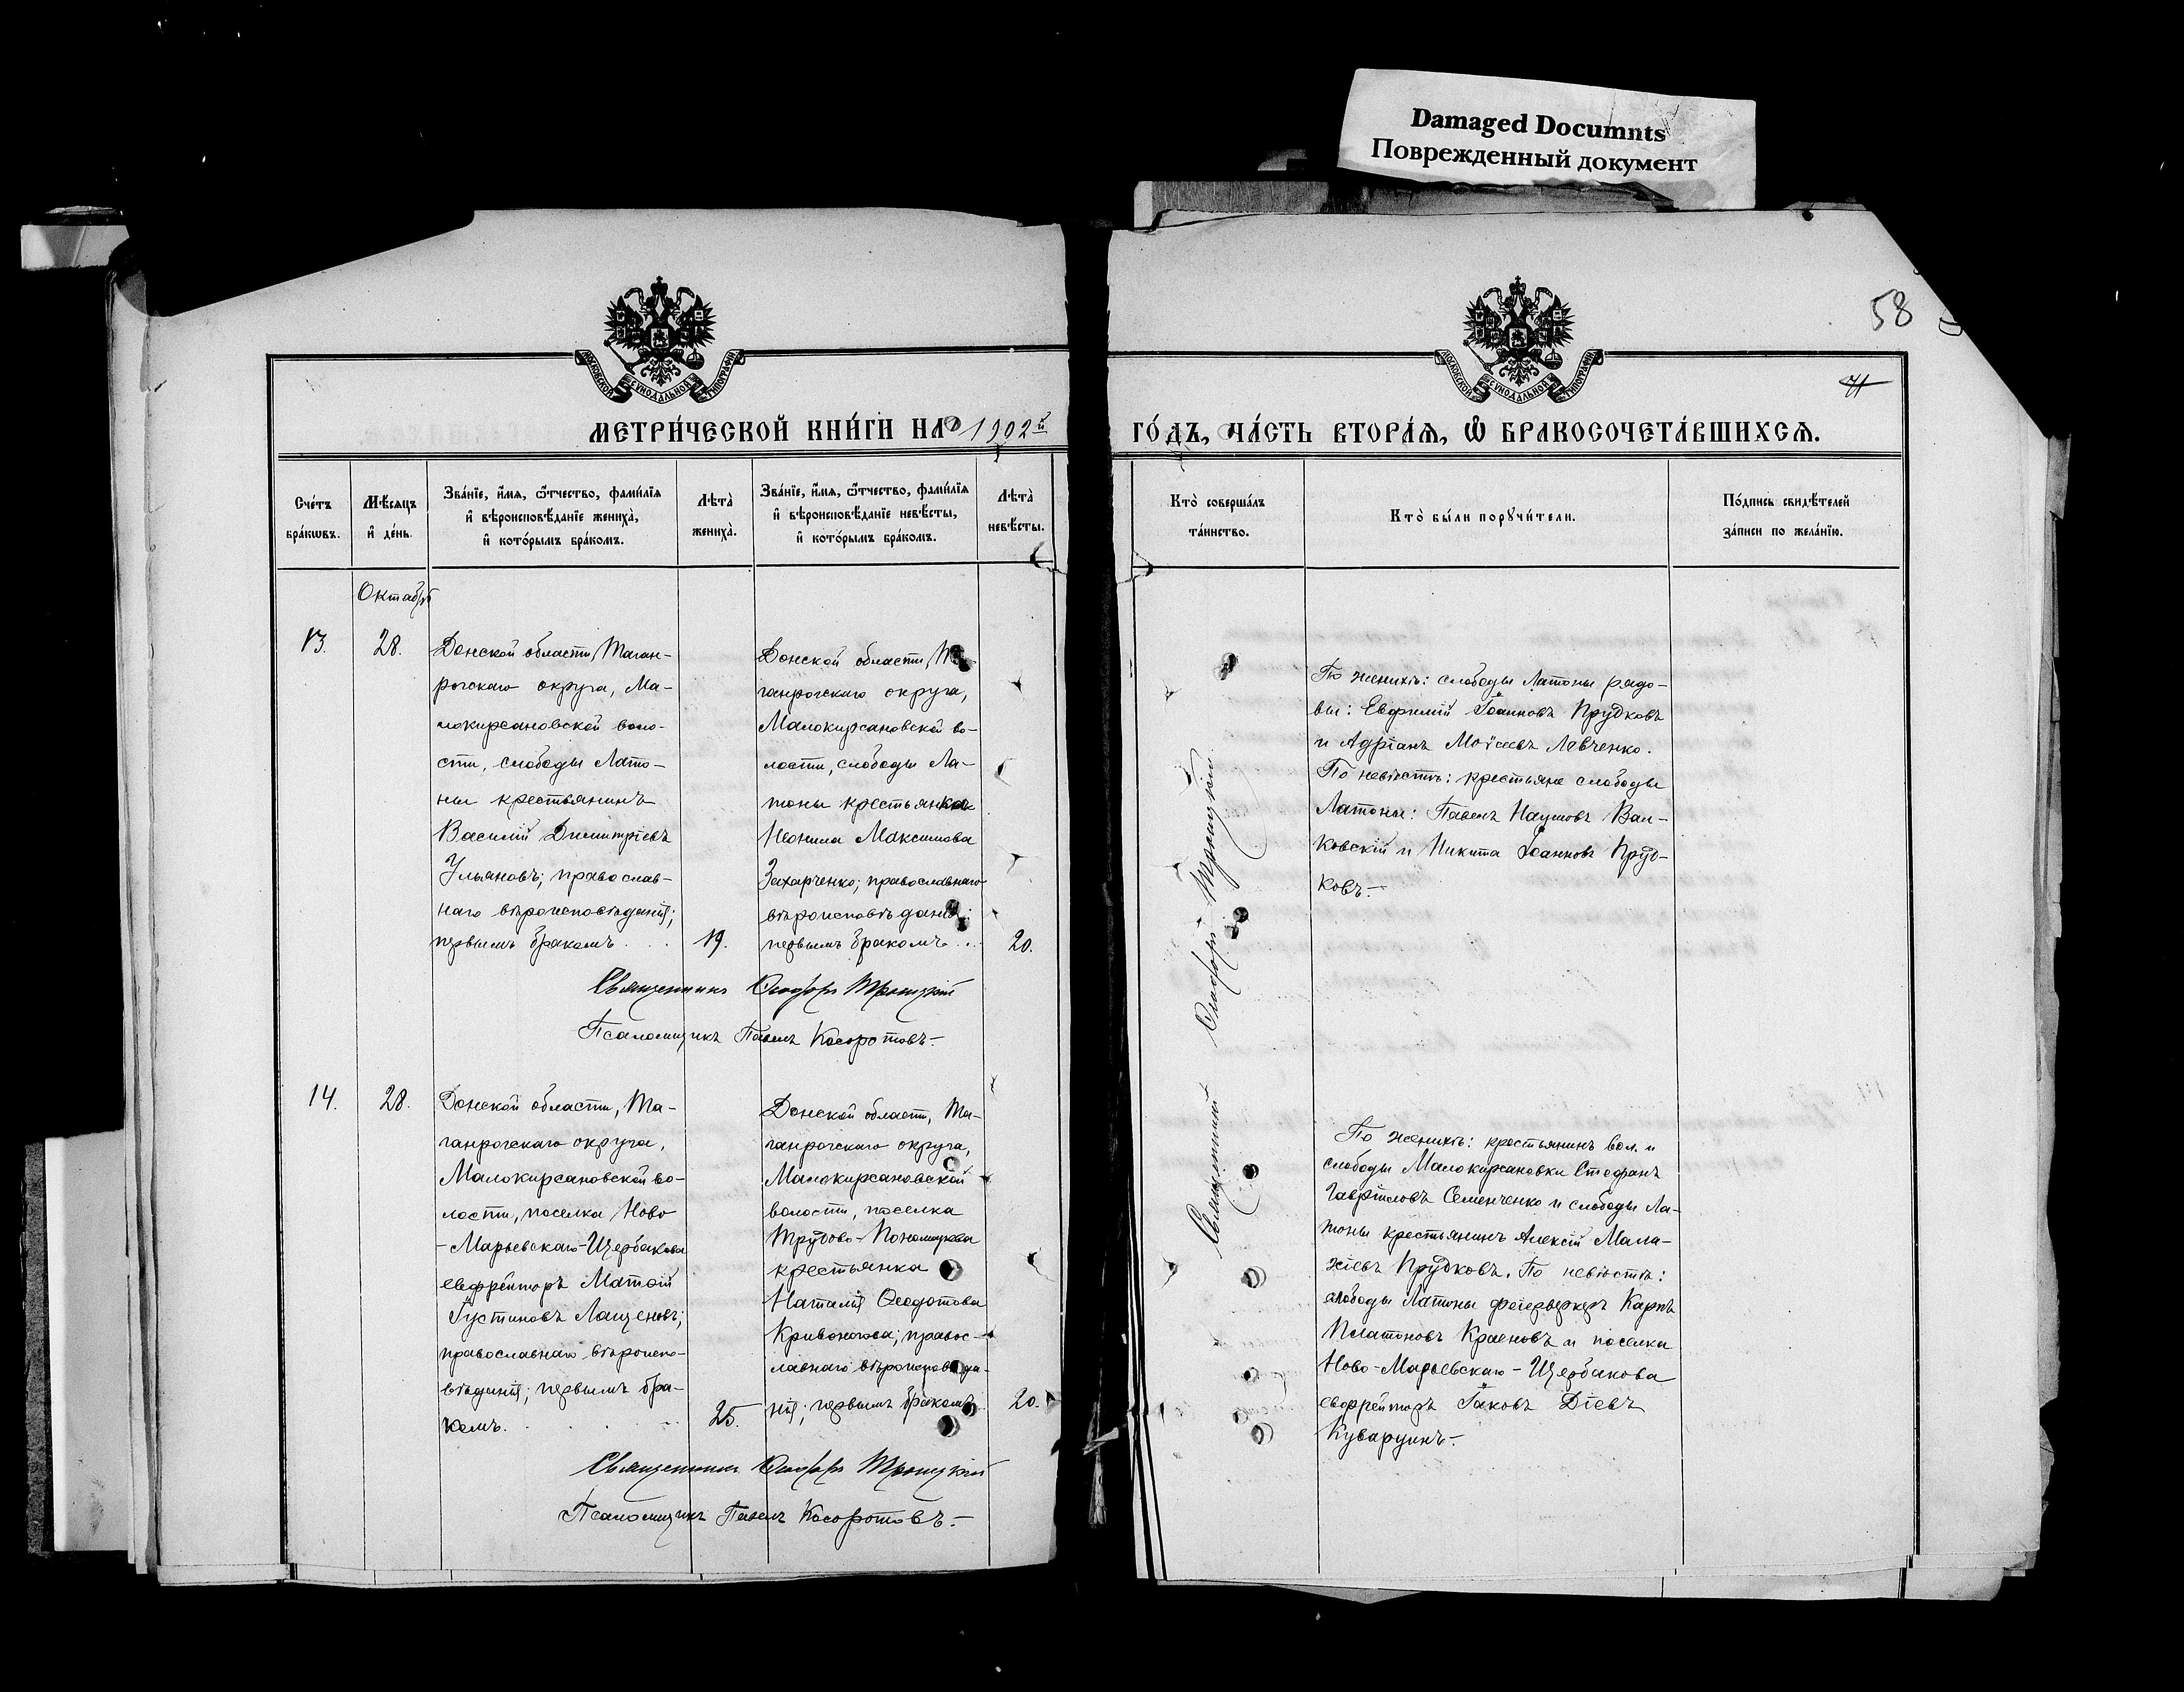 Damaged Documnts
Поврежденный документ
58
71
МОСКОВСКОЙ СѴНОДАЛЬНОЙ ТИПОГРАФІИ
МОСКОВСКОЙ СѴНОДАЛЬНОЙ ТИПОГРАФІИ
МЕТРИ́ЧЕСКОЙ КНИ́ГИ НА 1902й
ГО́ДЪ, ЧА́СТЬ ВТОРА́Я, Ѡ҆ БРАКОСОЧЕТА́ВШИХСЯ.
Сче́тъ
бра́кѡвъ.
Мѣ́сяцъ
и҆ де́нь.
Зва́нїе, и҆́мя, ѻ҆́тчество, фами́лїя
и҆ вѣроисповѣ́данїе жениха̀,
и҆ кото́рымъ бра́комъ.
Лѣта̀
жениха̀.
Зва́нїе, и҆́мя, ѻ҆́тчество, фами́лїя
и҆ вѣроисповѣ́данїе невѣ́сты,
и҆ кото́рымъ бра́комъ.
Лѣта̀
невѣ́сты.
Кто̀ соверша́лъ
та́инство.
Кто̀ бы́ли порꙋчи́тели.
По́дпись свидѣ́телей
за́писи по жела́нїю.
Октября
13.
28.
Донской области, Таган-
рогскаго округа, Ма-
локирсановской воло-
сти, слободы Лато-
ны крестьянинъ
Василій Димитріевъ
Ульяновъ; православ-
наго вѣроисповѣданія;
первымъ бракомъ . . .
19.
Донской области, Та-
ганрогскаго округа,
Малокирсановской во-
лости, слободы Ла-
тоны крестьянка
Неонила Максимова
Захарченко; православнаго
вѣроисповѣданія;
первымъ бракомъ . . .
20.
Священникъ Ѳеодоръ Троицкій
Псаломщикъ Павелъ Косоротовъ.-
По женихѣ: слободы Латоны рядо-
вые: Евфимій Іоанновъ Прудковъ
и Адріанъ Моѵсеевъ Левченко.
По невѣстѣ: крестьяне слободы
Латоны: Павелъ Наумовъ Вал-
ковскій и Никита Іоанновъ Пруд-
ковъ.-
Священникъ Ѳеодоръ Троицкій
14.
28.
Донской области, Та-
ганрогскаго округа,
Малокирсановской во-
лости, поселка Ново
-Марьевскаго-Щербакова
ефрейторъ Матѳій
Іустиновъ Лащеновъ;
православнаго вѣроиспо-
вѣданія; первымъ бра-
комъ. . . .
25.
Донской области, Та-
ганрогскаго округа,
Малокирсановской
волости, поселка
Трудово-Пономарева
крестьянка
Наталія Ѳеодотова
Кривоногова; правос-
лавнаго вѣроисповѣда-
нія; первымъ бракомъ.
20.
Священникъ Ѳеодоръ Троицкій
Псаломщикъ Павелъ Косоротовъ.-
По женихѣ: крестьянинъ вол. и
слободы Малокирсановки Стефанъ
Гавріиловъ Семенченко и слободы Ла-
тоны крестьянинъ Алексій Мала-
хіевъ Прудковъ. По невѣстѣ:
слободы Латоны фейерверкеръ Карпъ
Платоновъ Красновъ и поселка
Ново-Марьевскаго-Щербакова
ефрейторъ Іаковъ Діевъ